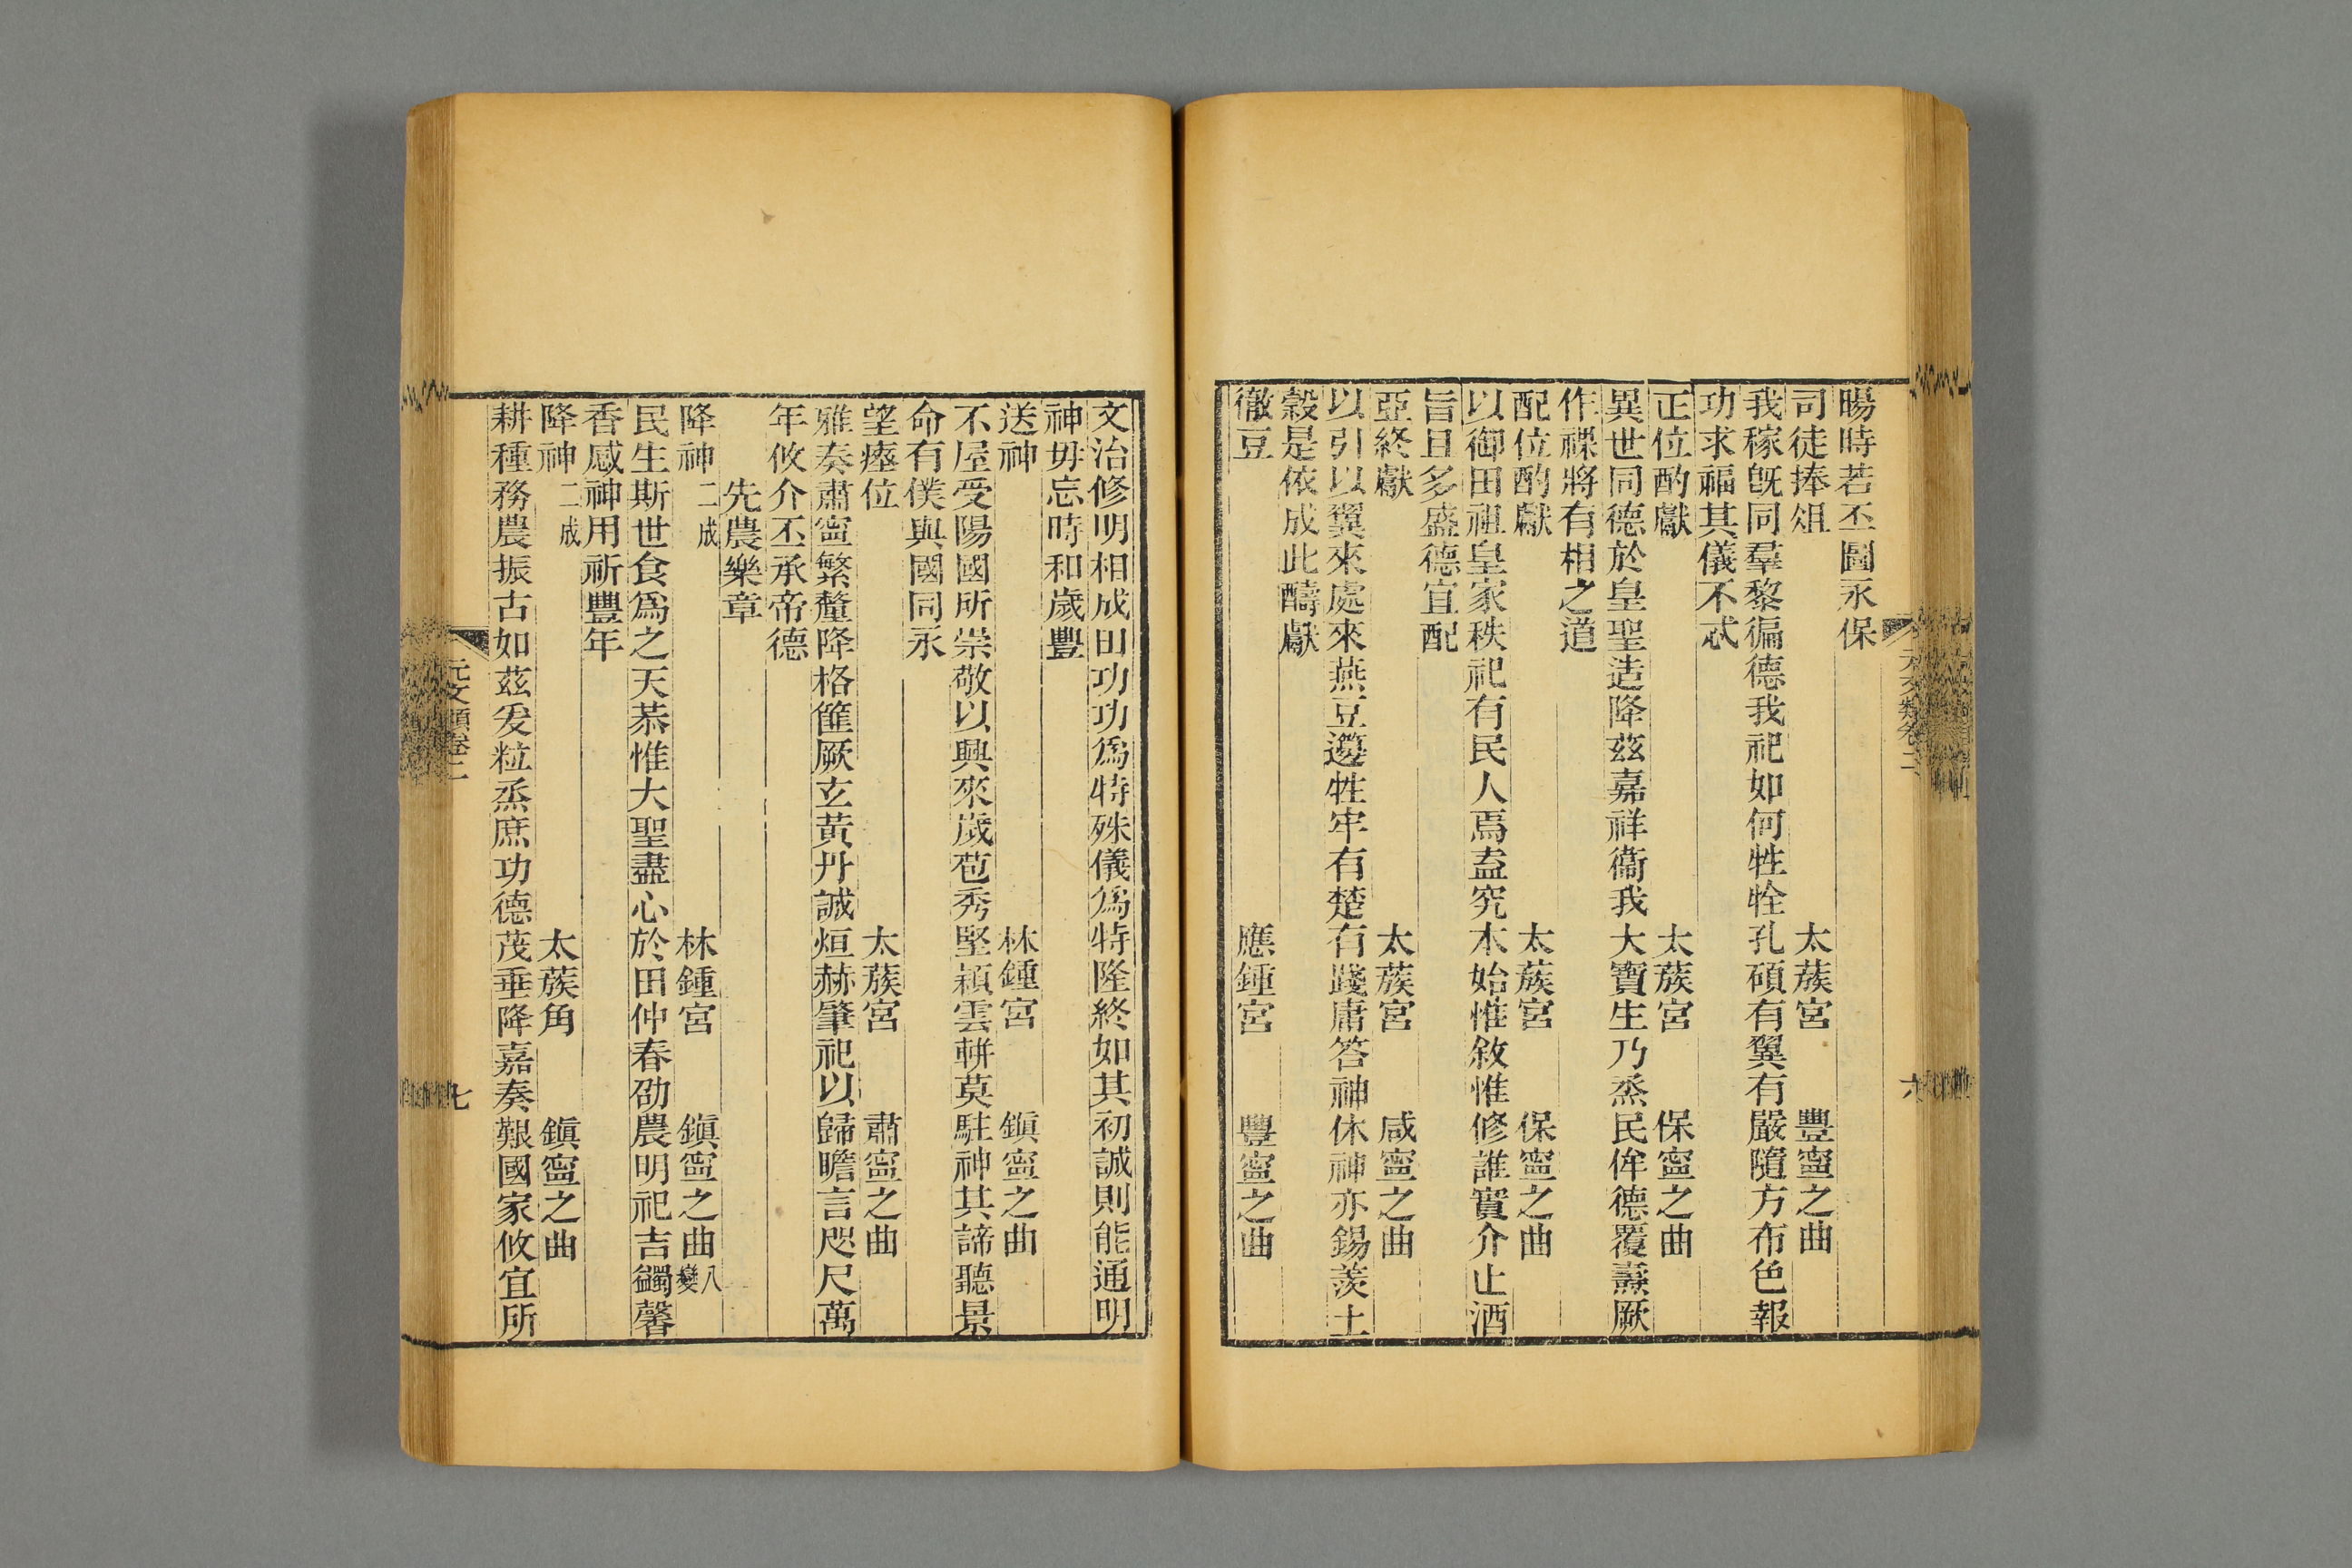 暘時若丕圖永保
司徒捧俎 太蔟宮 豐寧之曲
我稼旣同羣黎徧德我祀如何牲牷孔碩有翼有嚴隨方布色報
功求福其儀不忒
正位酌獻 太蔟宮 保寧之曲
異世同德於皇聖造降茲嘉祥衞我大寶生乃烝民侔德覆燾厥
作祼將有相之道
配位酌獻 太蔟宮 保寧之曲
以御田祖皇家秩祀有民人焉盍究本始惟敘惟修誰實介止酒
旨且多盛德宜配
亞終獻 太蔟宮 咸寧之曲
以引以翼來處來燕豆籩牲牢有楚有踐庸答神休神亦錫羨土
穀是依成此醻獻
徹豆 應鍾宮 豐寧之曲
元文類卷二 六
文治修明相成田功功爲特殊儀爲特隆終如其初誠則能通明
神毋忘時和歲豐
送神 林鍾宮 鎭寧之曲
不屋受陽國所崇敬以興來歲苞秀堅穎雲軿莫駐神其諦聽景
命有僕與國同永
望瘞位 太蔟宮 肅寧之曲
雅奏肅寧繁釐降格篚厥玄黃丹誠烜赫肇祀以歸瞻言咫尺萬
年攸介丕承帝德
先農樂章
降神二成 林鍾宮 鎭寧之曲八變
民生斯世食爲之天恭惟大聖盡心於田仲春劭農明祀吉蠲馨
香感神用祈豐年
降神二成 太蔟角 鎭寧之曲
耕種務農振古如茲爰粒烝庶功德茂垂降嘉奏艱國家攸宜所
元文類卷二 七